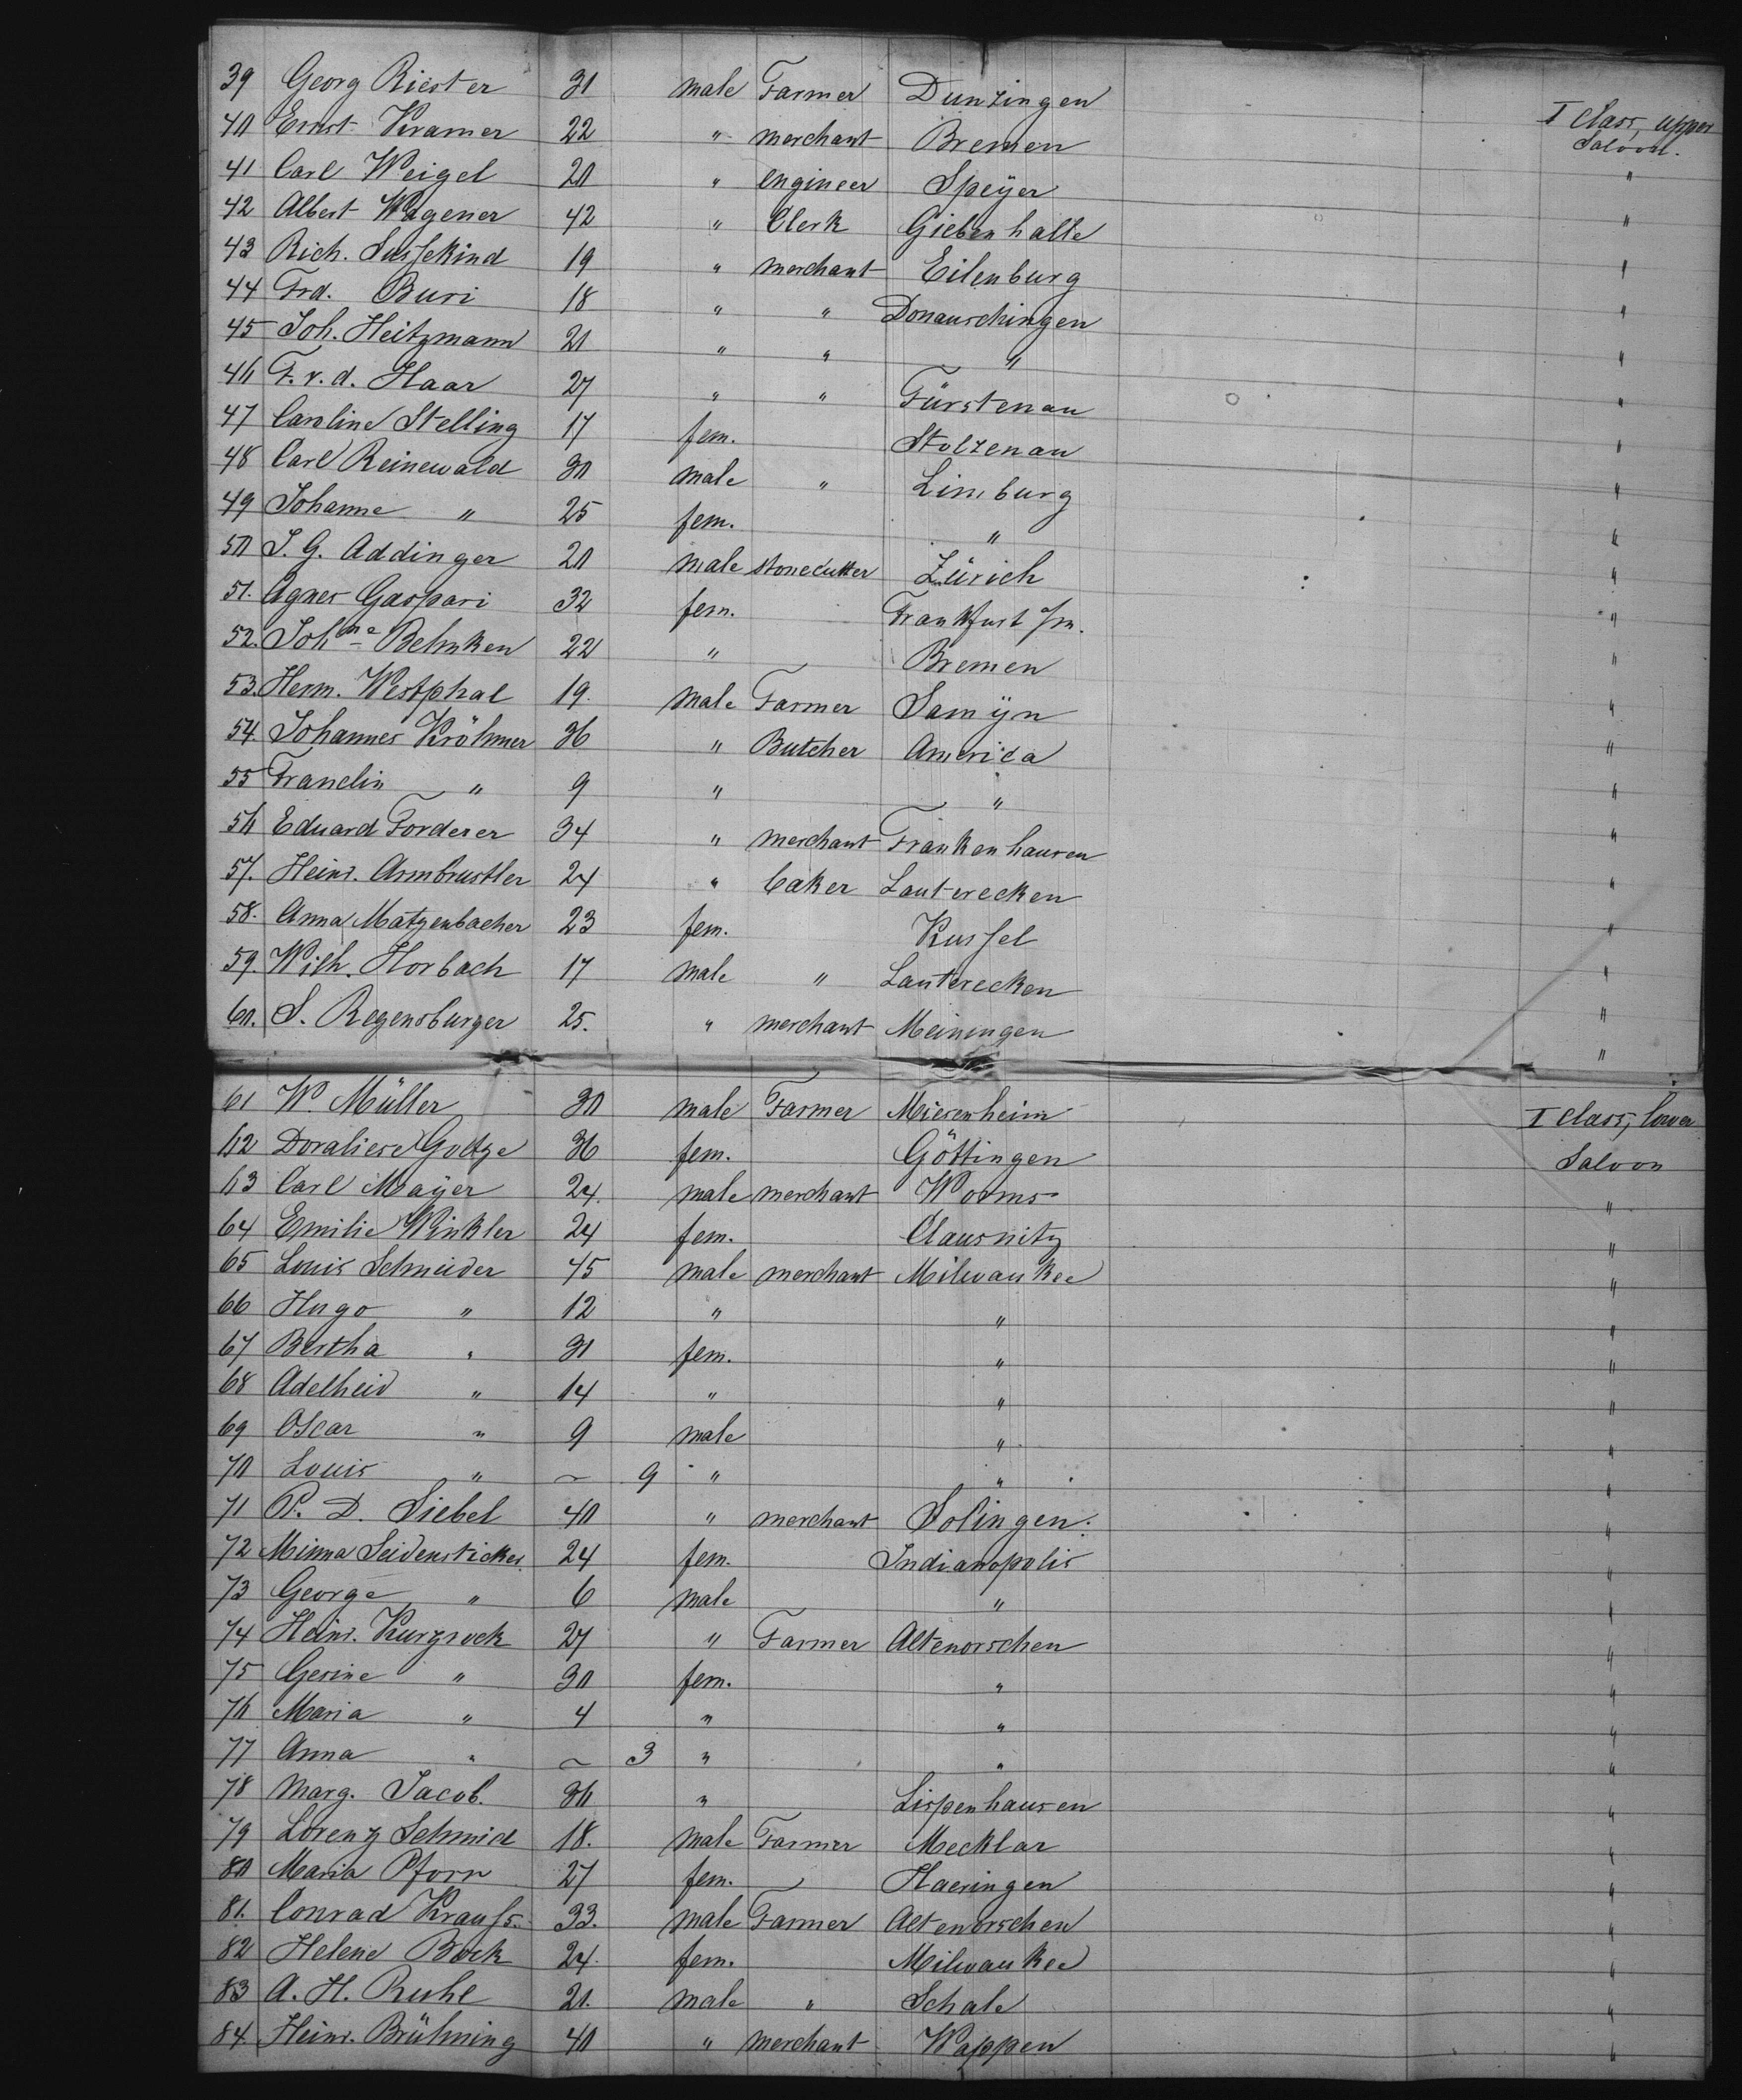 39 Georg Riester 31 male Farmer Dunzingen
I Class, upper
40 Ernst Kramer 22 " merchant Bremen Saloon.
41 Carl Weigel 20 " engineer Speÿer "
42 Albert Wagener 42 " Clerk Giebenhalle "
43 Rich. Sussekind 19 " merchant Eilenburg "
44 Frd. Buri 18 " " Donauschingen "
45 Joh. Heitzmann 21 " " " "
46 F. v. d. Haar 27 " " Fürstenau "
47 Caroline Stelling 17 fem. Stolzenau "
48 Carl Reinewald 30 male " Limburg "
49 Johanne " 25 fem. " "
50 J. G. Addinger 20 male stonecutter Zürich "
51. Agnes Gaspari 32 fem. Frankfurt a/m. "
52. Johne Behnken 22 " Bremen "
53. Herm. Westphal 19. male Farmer Samÿn "
54. Johannes Kröhmer 36 " Butcher America "
55 Franclin " 9 " " "
56 Eduard Forderer 34 " merchant Frankenhausen "
57. Heinr. Armbrustler 24 " baker Lauterecken "
58. Anna Matzenbacher 23 fem. Kussel "
59. Wilh. Horbach 17 male " Lauterecken "
60. S. Regensburger 25. " merchant Meiningen "
61 W. Müller 30 male Farmer Miesenheim I Class, lower
62 Doraliese Goltze 36 fem. Göttingen Saloon
63 Carl Maÿer 24. male merchant Worms "
64 Emilie Winkler 24 fem. Clausnitz "
65 Louis Schneider 45 male merchant Milwaukee "
66 Hugo " 12 " " "
67 Bertha " 31 fem. " "
68 Adelheid " 14 " " "
69 Oscar " 9 male " "
70 Louis " ~ 9 " " "
71 P. D. Siebel 40 " merchant Solingen. "
72 Minna Seidensticker 24 fem. Indianopolis "
73 George " 6 male " "
74 Heinr. Kurzrock 27 " Farmer Altenorschen "
75 Gesine " 30 fem. " "
76 Maria " 4 " " "
77 Anna " ~ 3 " " "
78 Marg. Jacob. 36 " Lispenhausen "
79 Lorenz Schmid 18. male Farmer Mecklar "
80 Maria Pforr 27 fem. Haeringen "
81. Conrad Krauss. 33. male Farmer Altenorschen "
82 Helene Bock 24. fem. Milwaukee "
83 A. H. Ruhl 21. male " Schale "
84. Heinr. Brühning 40 " merchant Wappen "